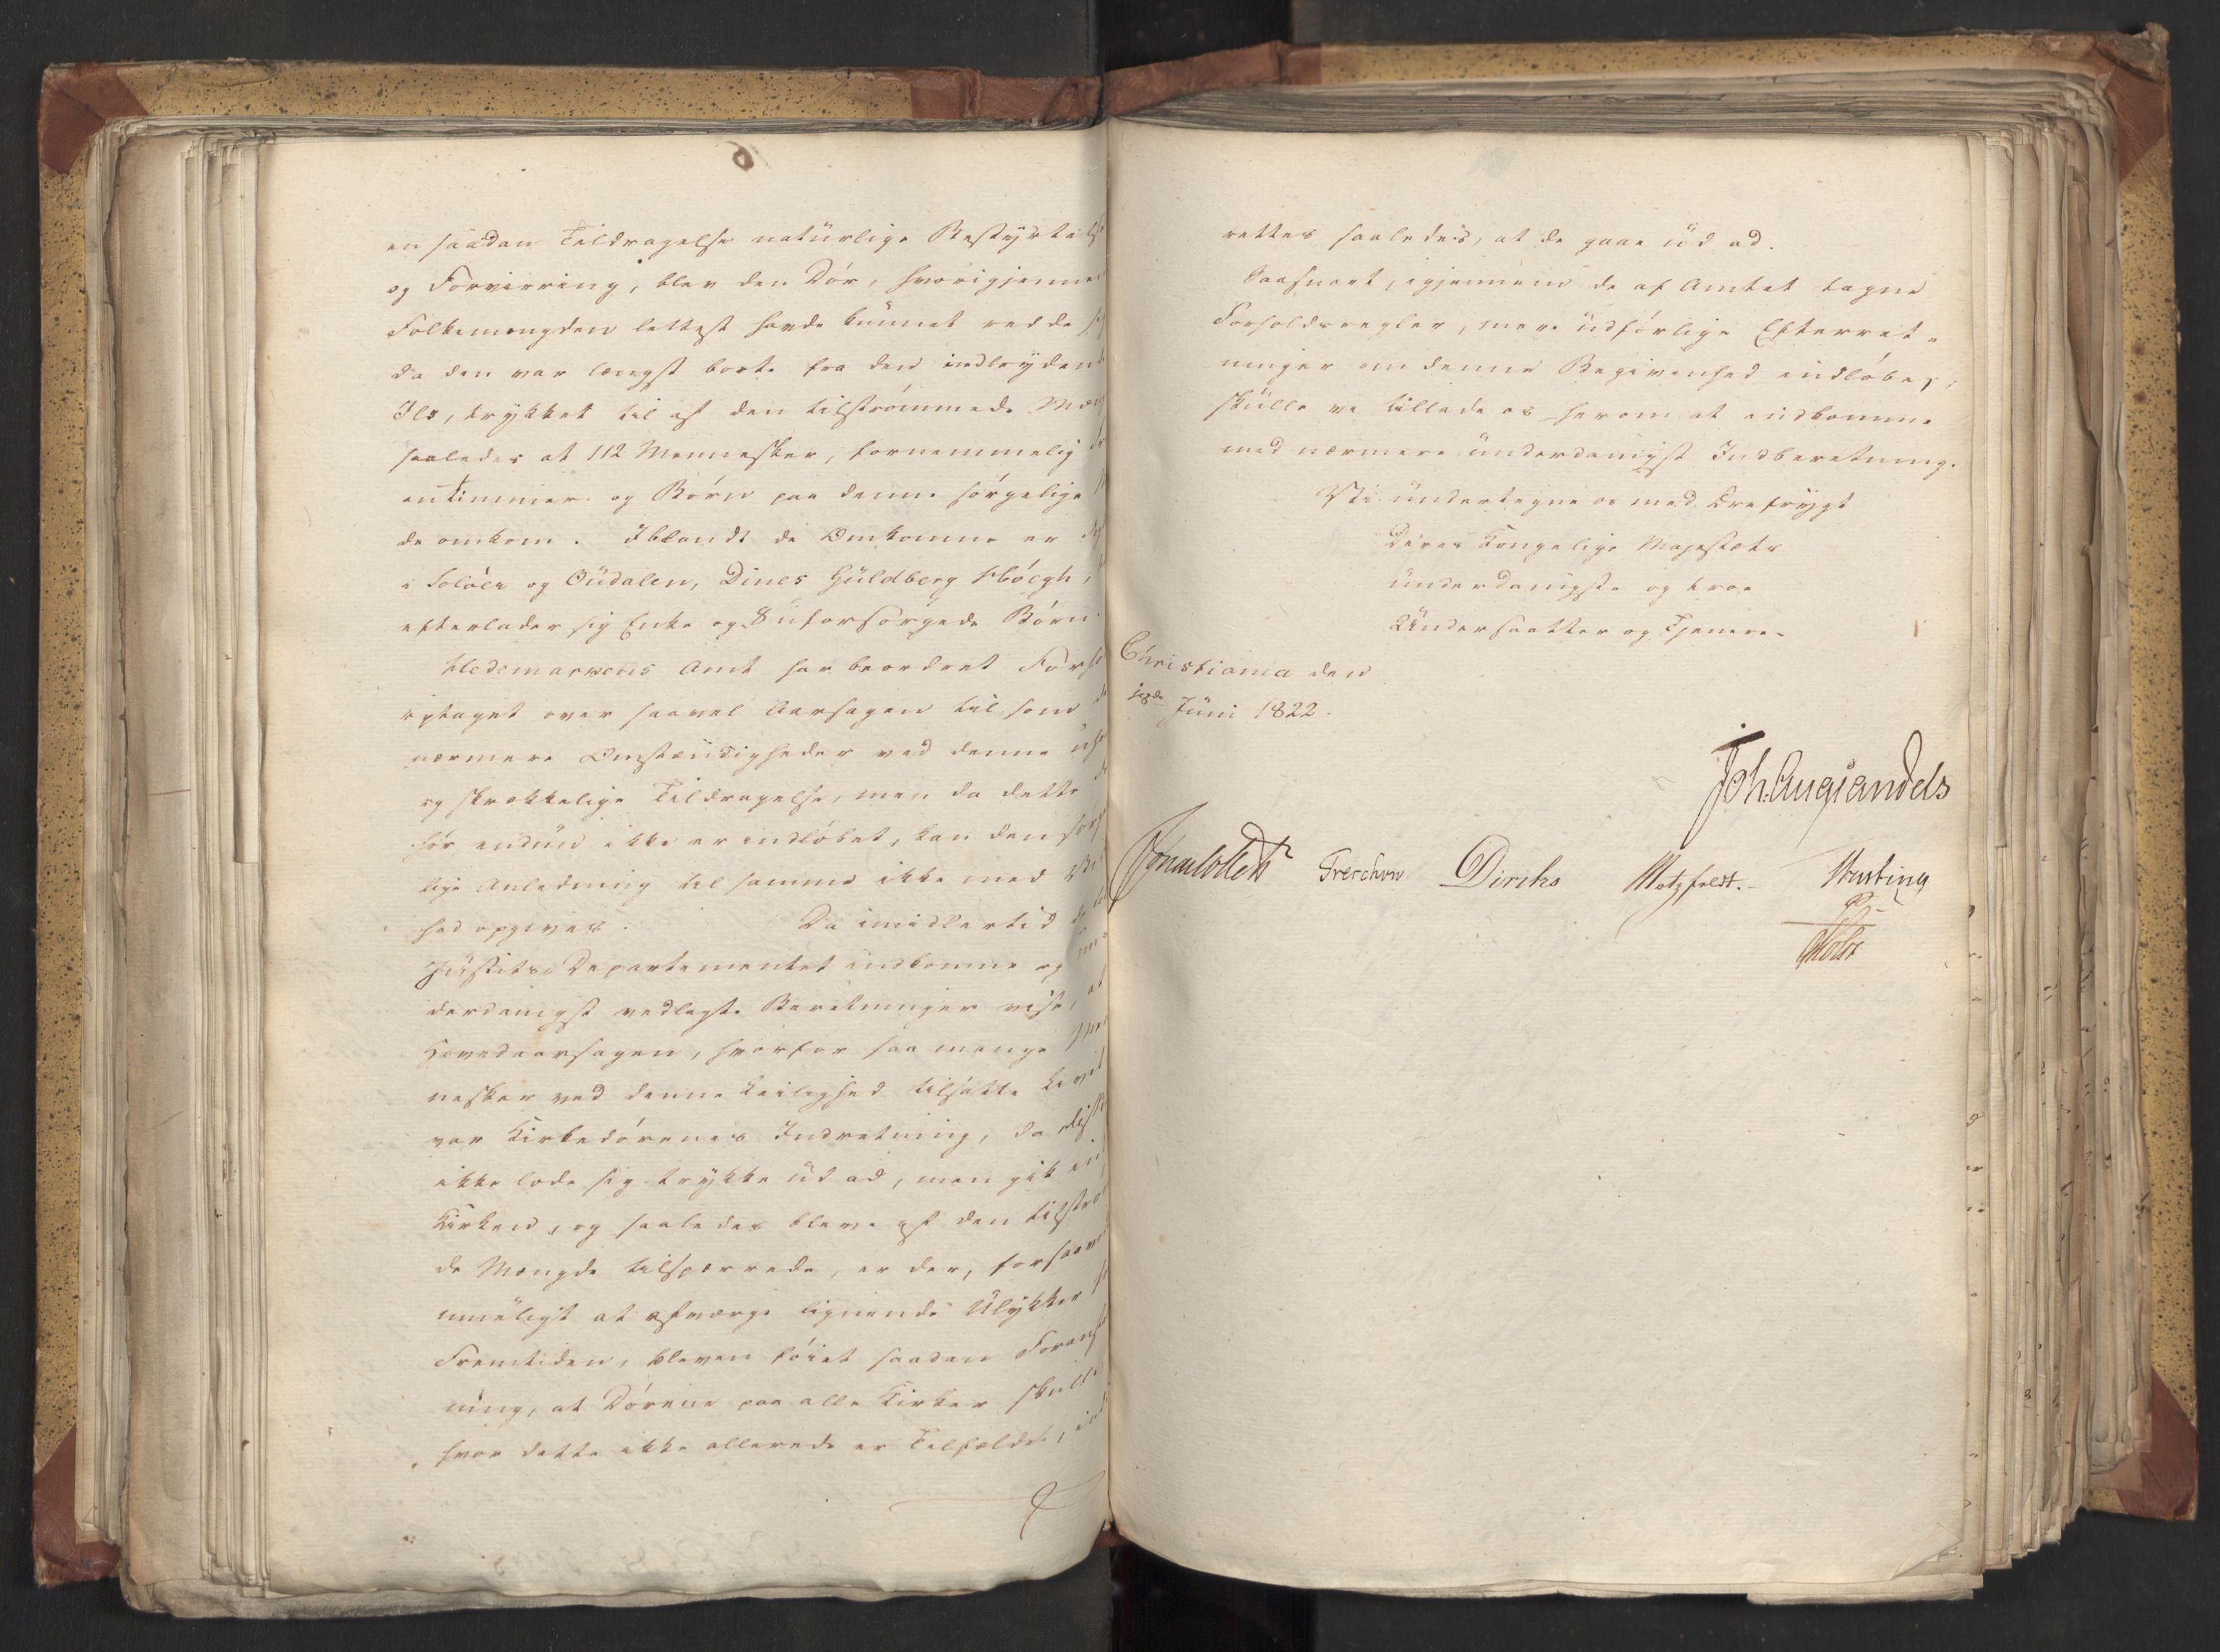 en saadan Tildragelse natürlige Bestyrtelse
og Forvirring, blev den Dör, hvorigjennem
Folkemængden lettest havde kunnet redde sig
da den var længst borte fra den indbrydende
Ild, trykket til af den tilstrømmede
saaledes at 112 Mennesker, fornemmelig
entimmer og Börn paa denne sörgelige
de omkom. Iblandt de Omkomne er
i Solöer og Oüdalen, Dines Güldberg Höegh,
efterlader sig Enke og 8 uforsörgede Börn.
Hedemarkens Amt har beordret Forhör
optaget over saavel Aarsagen til, som
nærmere Omstændigheder ved denne
og skrækkelige Tildragelse, men da dette
hör endnü ikke er indlöbet, kan den
lige Anledning til samme ikke med Vis
hed opgives. Da imidlertid de
Jüstits-Departementet indkomne og un-
derdanigst vedlagte Beretninger vise, at
Hovedaarsagen, hvorfor saa mange Men
nesker ved denne Leilighed tilsatte Livet
var Kirkedörenes Indretning, da disse
ikke lode sig trykke üd ad, men gik ind
Kirken, og saaledes bleve af den
de Mængde tilspærrede, er der, forsaavidt
müeligt at afværge lignende Ülykker for
Fremtiden, bleven föiet saadan Foranstalt
ning, at Dörene paa alle Kirker skulle
hvor dette ikke allerede er Tilfældet, ind
rettes saaledes, at de gaae üd ad.
Saasnart, igjennem de af Amtet tagne
Forholdsregler, mere üdförlige Efterret-
ninger om denne Begivenhed indlöbe,
skülle vi tillade os herom at indkomme
med nærmere ünderdanigst Indberetning.
Vi ündertegne os med Ærefrygt
Deres Kongelige Majestæts
ünderdanigste og troe
Ündersaatter og Tjenere.
Christiania den
18de Jüni 1822.
Joh. Aug Sandels
Jonas Collett Treschow Diriks Motzfeldt. Krusting
Holst